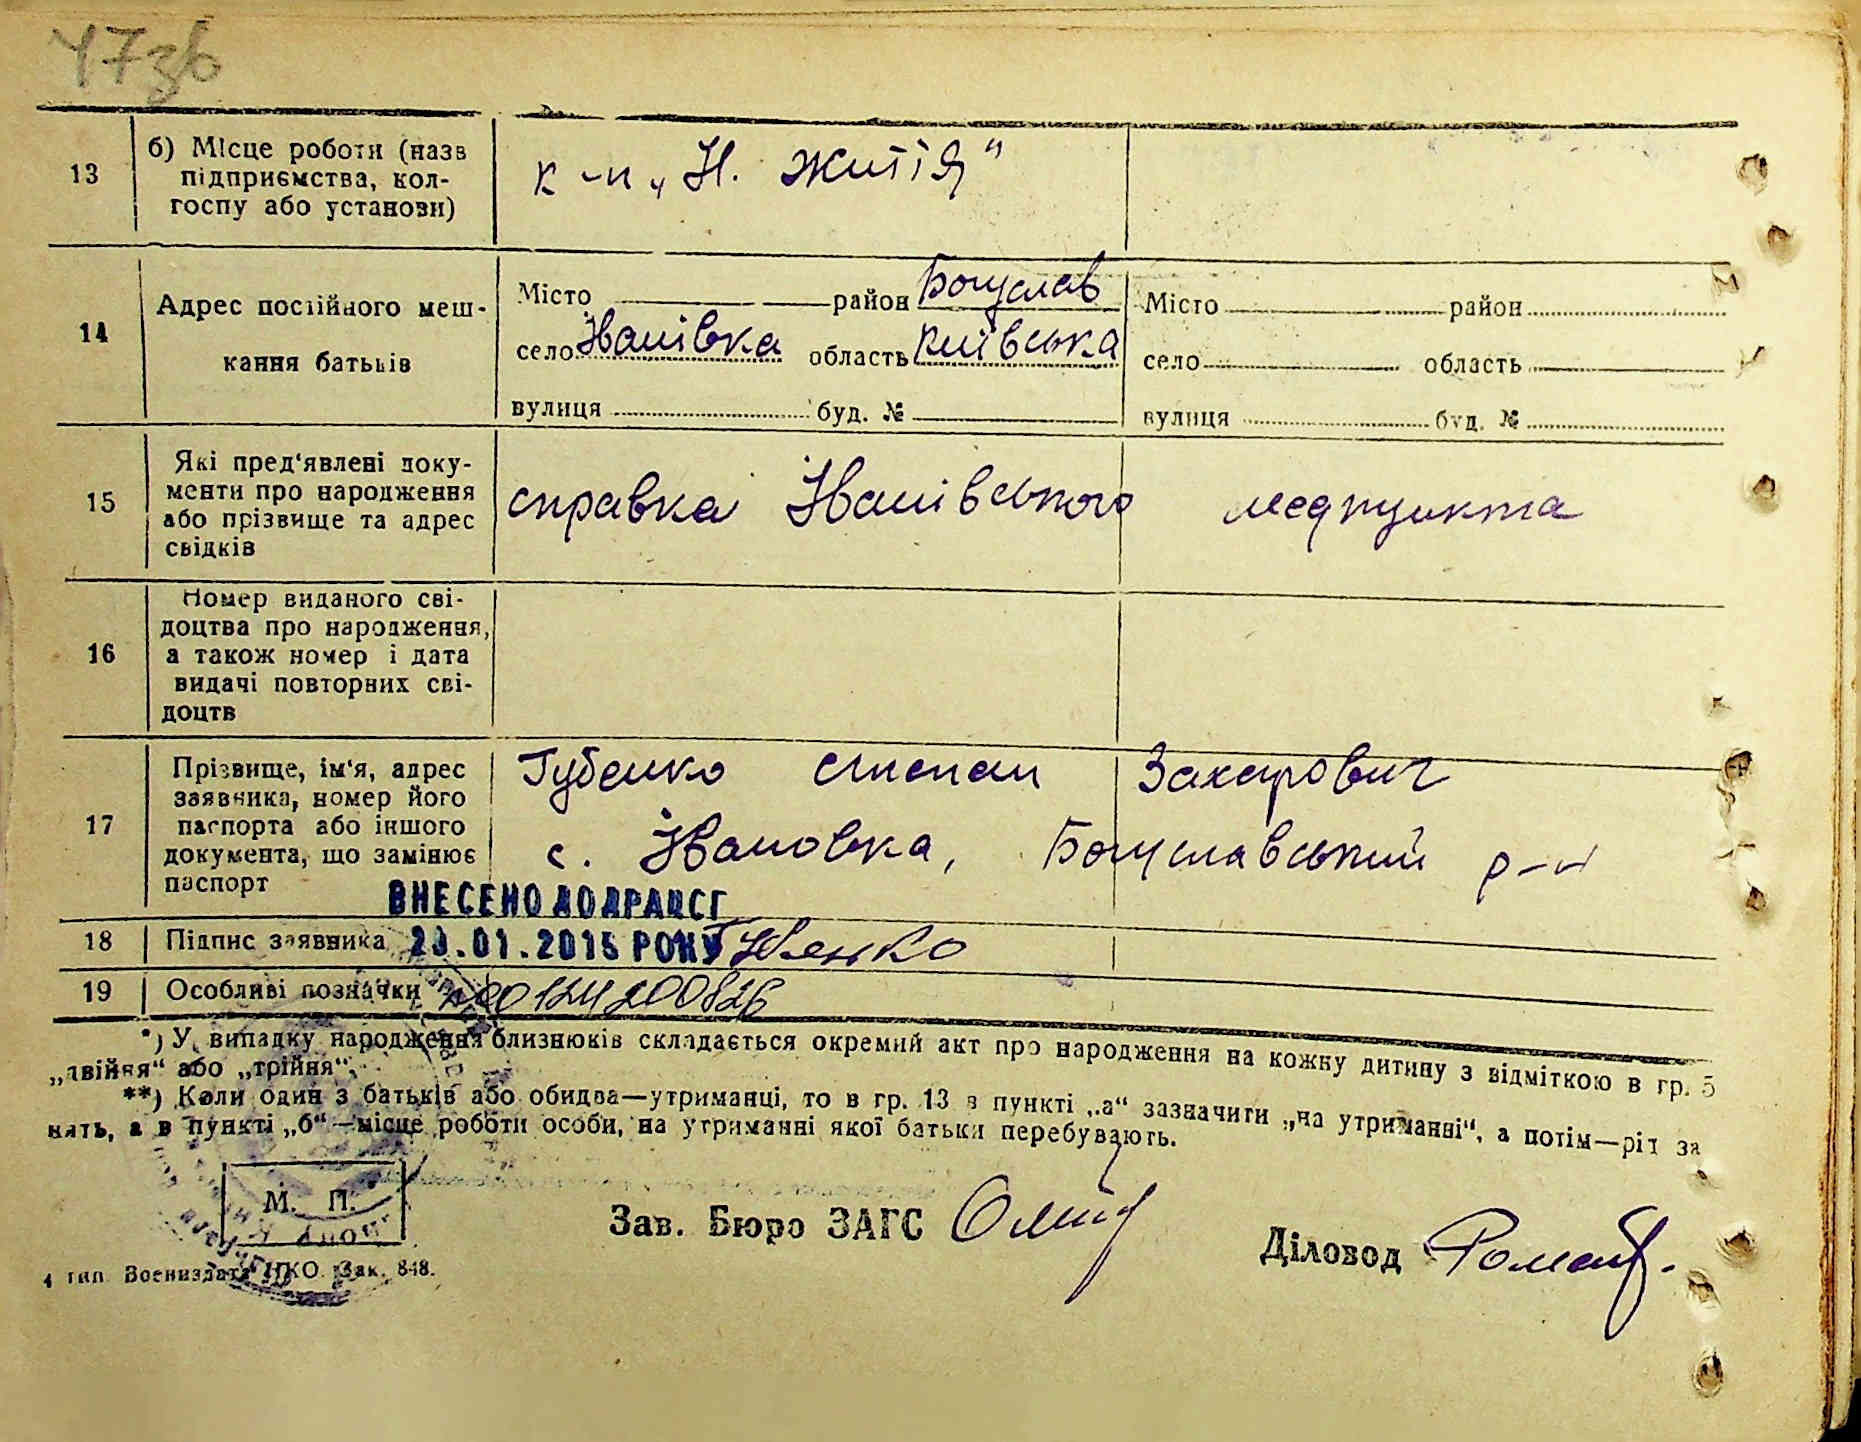 47зв
13
б) Місце роботи (назв
підприємства, кол-
госпу або установи)
к-п „Н. життя"
14
Адрес постійного меш-
кання батьків
Місто район Богуслав
село Іванівка область Київська
вулиця буд. №
Місто район
село область
вулиця буд. №
15
Які пред'явлені доку-
менти про народження
або прізвище та адрес
свідків
справка Іванівського медпункта
16
Номер виданого сві-
доцтва про народження,
а також номер і дата
видачі повторних сві-
доцтв
17
Прізвище, ім'я, адрес
заявника, номер його
паспорта або іншого
документа, що замінює
паспорт
Губенко Степан Захарович
с. Івановка, Богуславський р-н
ВНЕСЕНО ДО ДРАЦСГ
18 Підпис заявника
.01.2015 РОКУ
19 Особливі позначки
00124200826
*) У випадку народження близнюків складається окремий акт про народження на кожну дитину з відміткою в гр. 5
„двійня“ або „трійня“.
**) Коли один з батьків або обидва—утриманці, то в гр. 13 в пункті „а“ зазначити „на утриманні“, а потім—рід за
нять, а в пункті „б“—місце роботи особи, на утриманні якої батьки перебувають.
М. П.
Зав. Бюро ЗАГС
Діловод
4 тип. Воениздата НКО. Зак. 848.